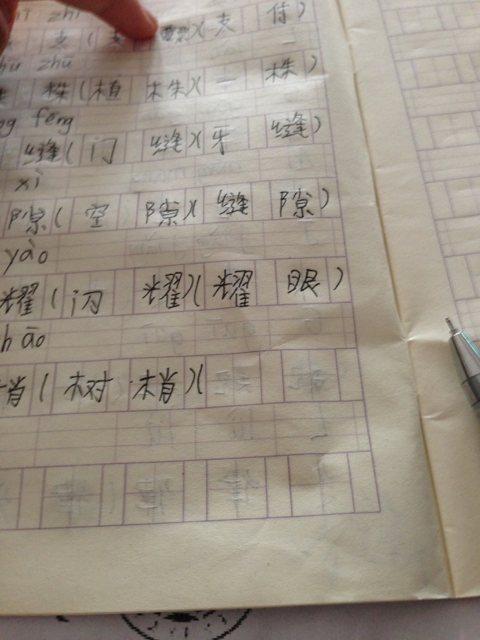 zhī
支(支 )(支 付)
zhū
株(植 株)(一 株)
fèng
缝(门 缝)(牙 缝)
xì
隙(空 隙)(缝 隙)
yào
耀(闪 耀)(耀 眼)
hāo
梢(树 梢)(